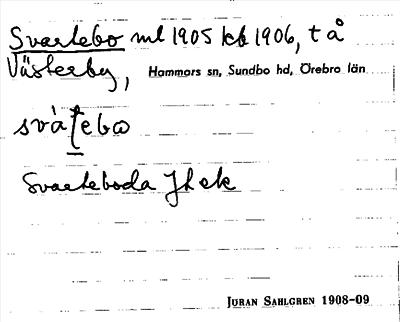 Svartebo ml 1905 kb 1906, t å
Västerby, Hammars sn, Sundbo hd, Örebro län
Svarteboda Jk ek
JURAN SAHLGREN 1908-09